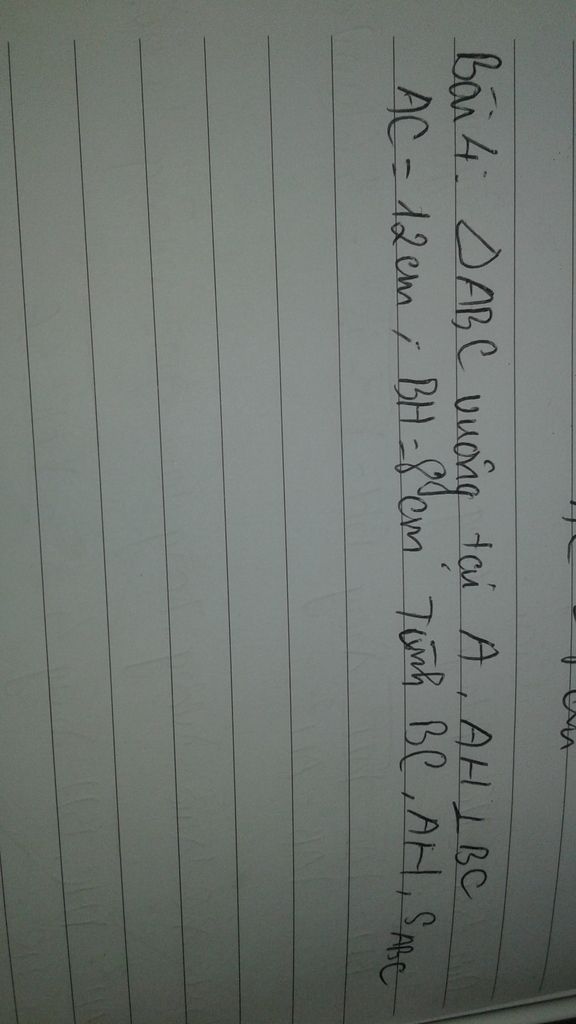 Bài 4: ΔABC vuông tại A, AH ⊥ BC
AC = 12cm; BH = 8cm Tính BC, AH, S ABC